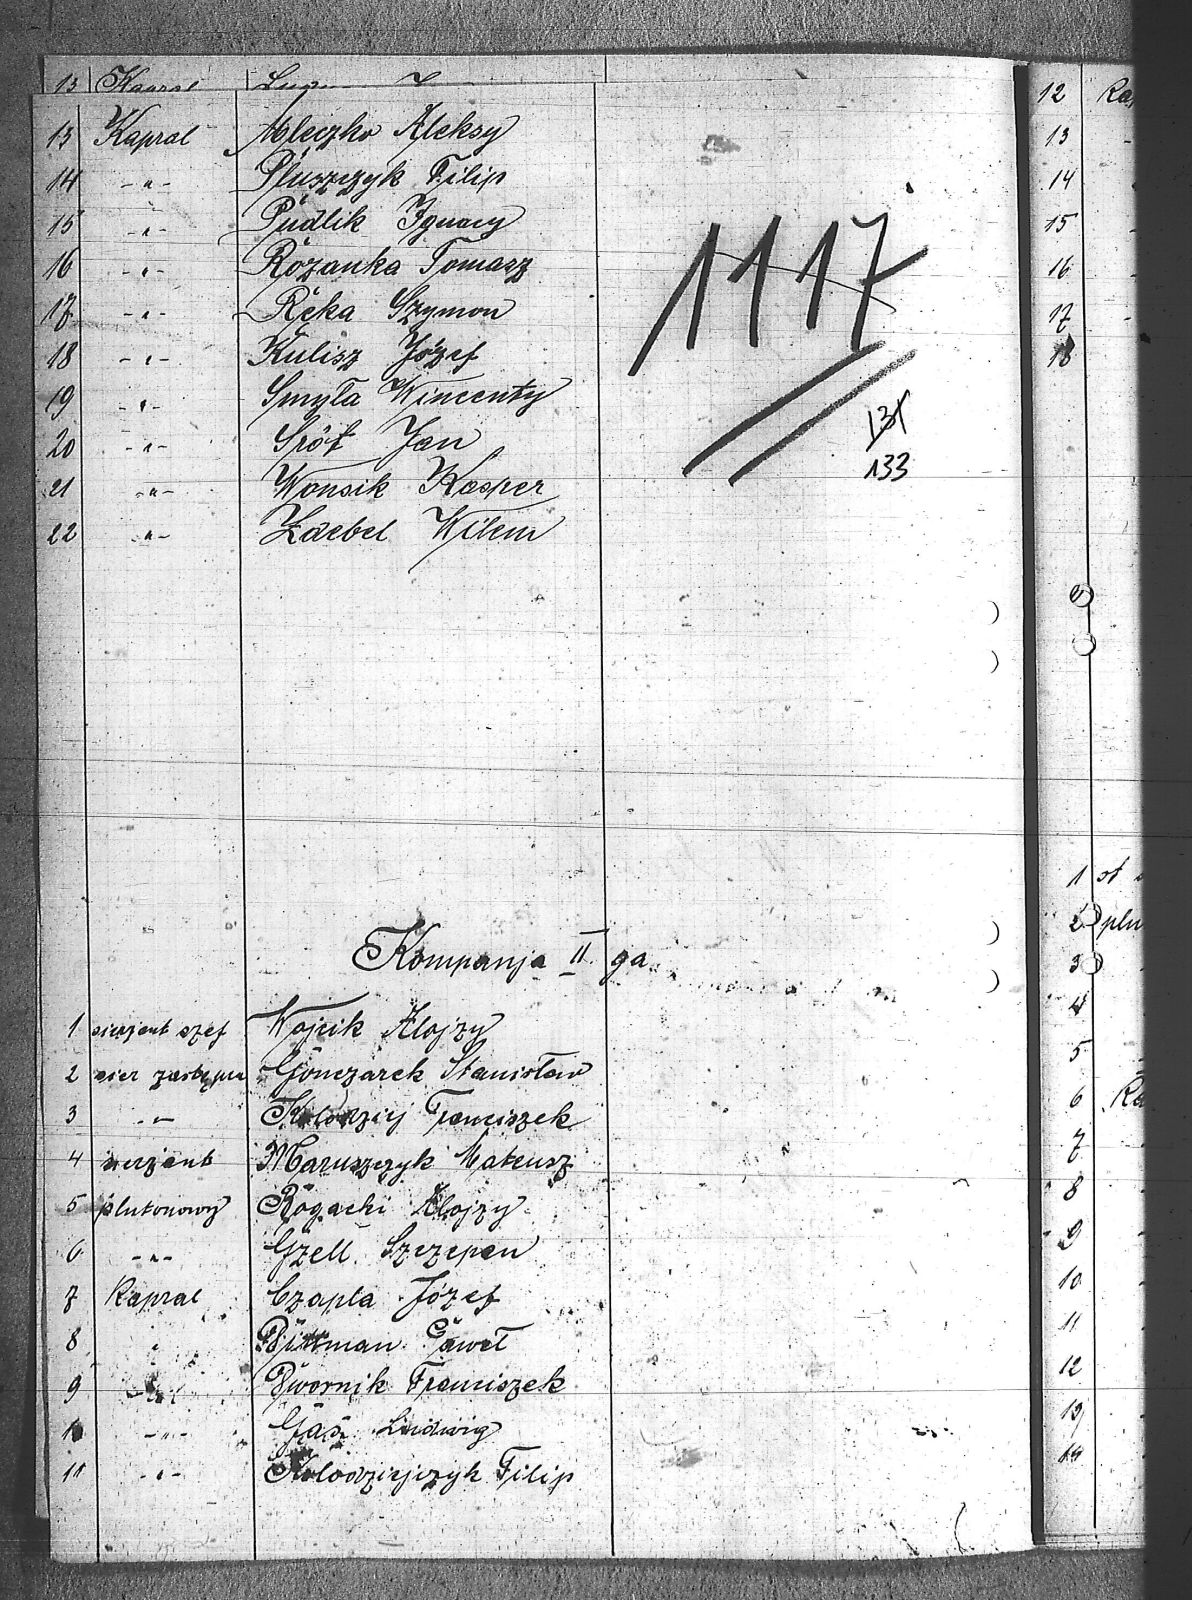 13 Kapral
13 Kapral Mleczko Aleksy
14 -"- Pluszczyk Filip
15 -"- Pudlik Ignacy
16 -"- Różanka Tomasz
17 -"- Ręka Szymon
18 -"- Kulisz Józef
19 -"- Smyła Wincenty
20 -"- Spół Jan
21 -"- Wonsik Kasper
22 -"- Zdebel Wilem
1117
131
133
Kompanja II ga
1 sierżant szef Wojcik Alojzy
2 sier zastępca Gonczarek Stanisław
3 -"- Kolodziej Franciszek
4 sierżant Maruszczyk Mateusz
5 plutonowy Rogacki Alojzy
6 -"- Gzell Szczepan
7 Kapral Czapla Józef
8 " Dittman Paweł
9 -"- Dwornik Franciszek
10 -"- Gaś Ludwig
11 -"- Kolodziejczyk Filip
12 Ka
13
14
15
16
17
18
1 st
2 plu
3
4
5
6 Ka
7
8
9
10
11
12
13
14